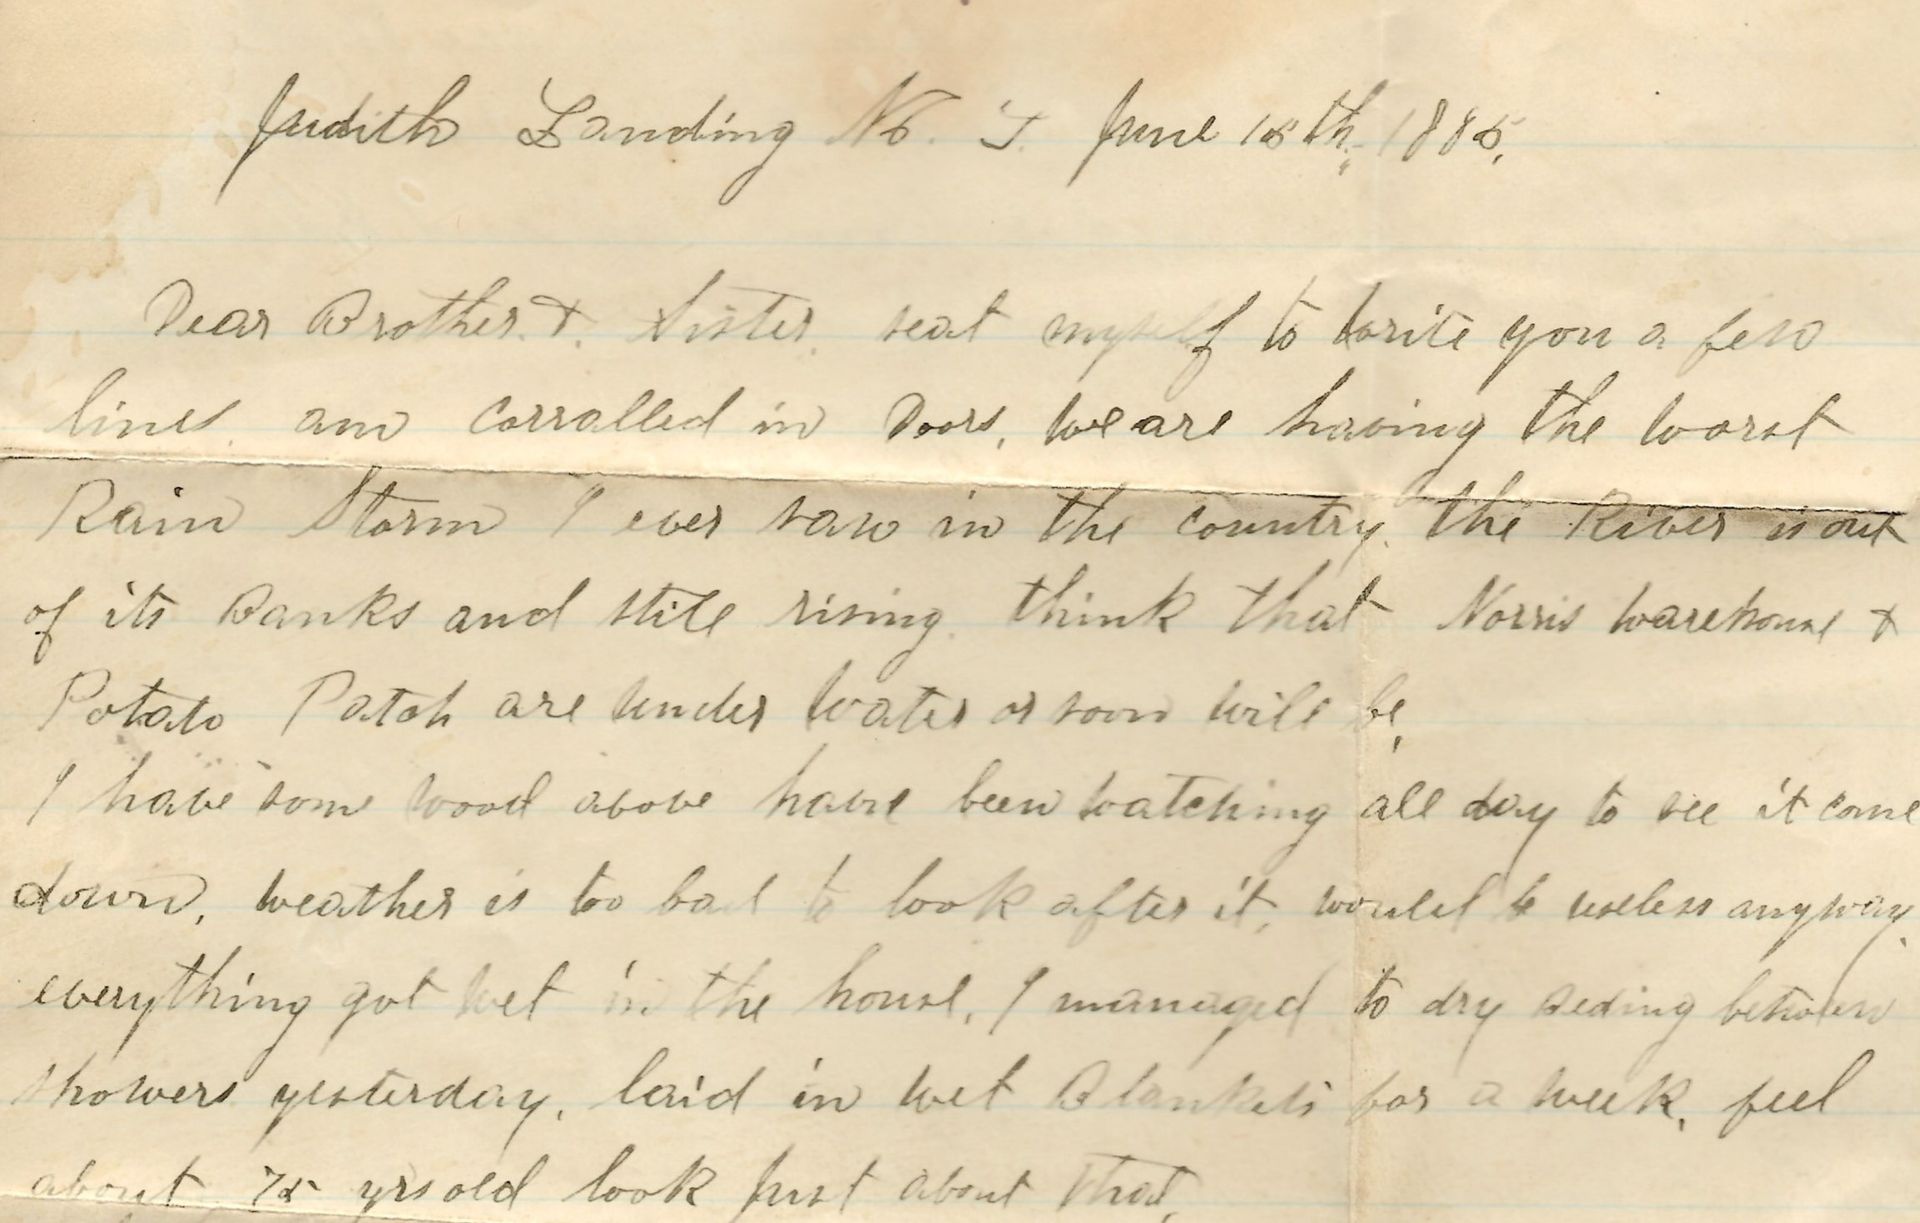 Judith Landing No. T. June 15th, 1885,
Dear Brother. &. Sister. seat myself to write you a few
lines. am corralled in Doors, we are having the worst
Rain Storm I ever saw in the country. the River is out
of its Banks and still rising. think that Norris warehouse &
Potato Patch are under water or soon will be,
I have some wood above have been watching all day to see it come
down, weather is too bad to look after it, would be useless anyway.
everything got wet in the house, I managed to dry beding between
showers yesterday, laid in wet Blankets for a week, feel
about 75 yrs old look just about that,